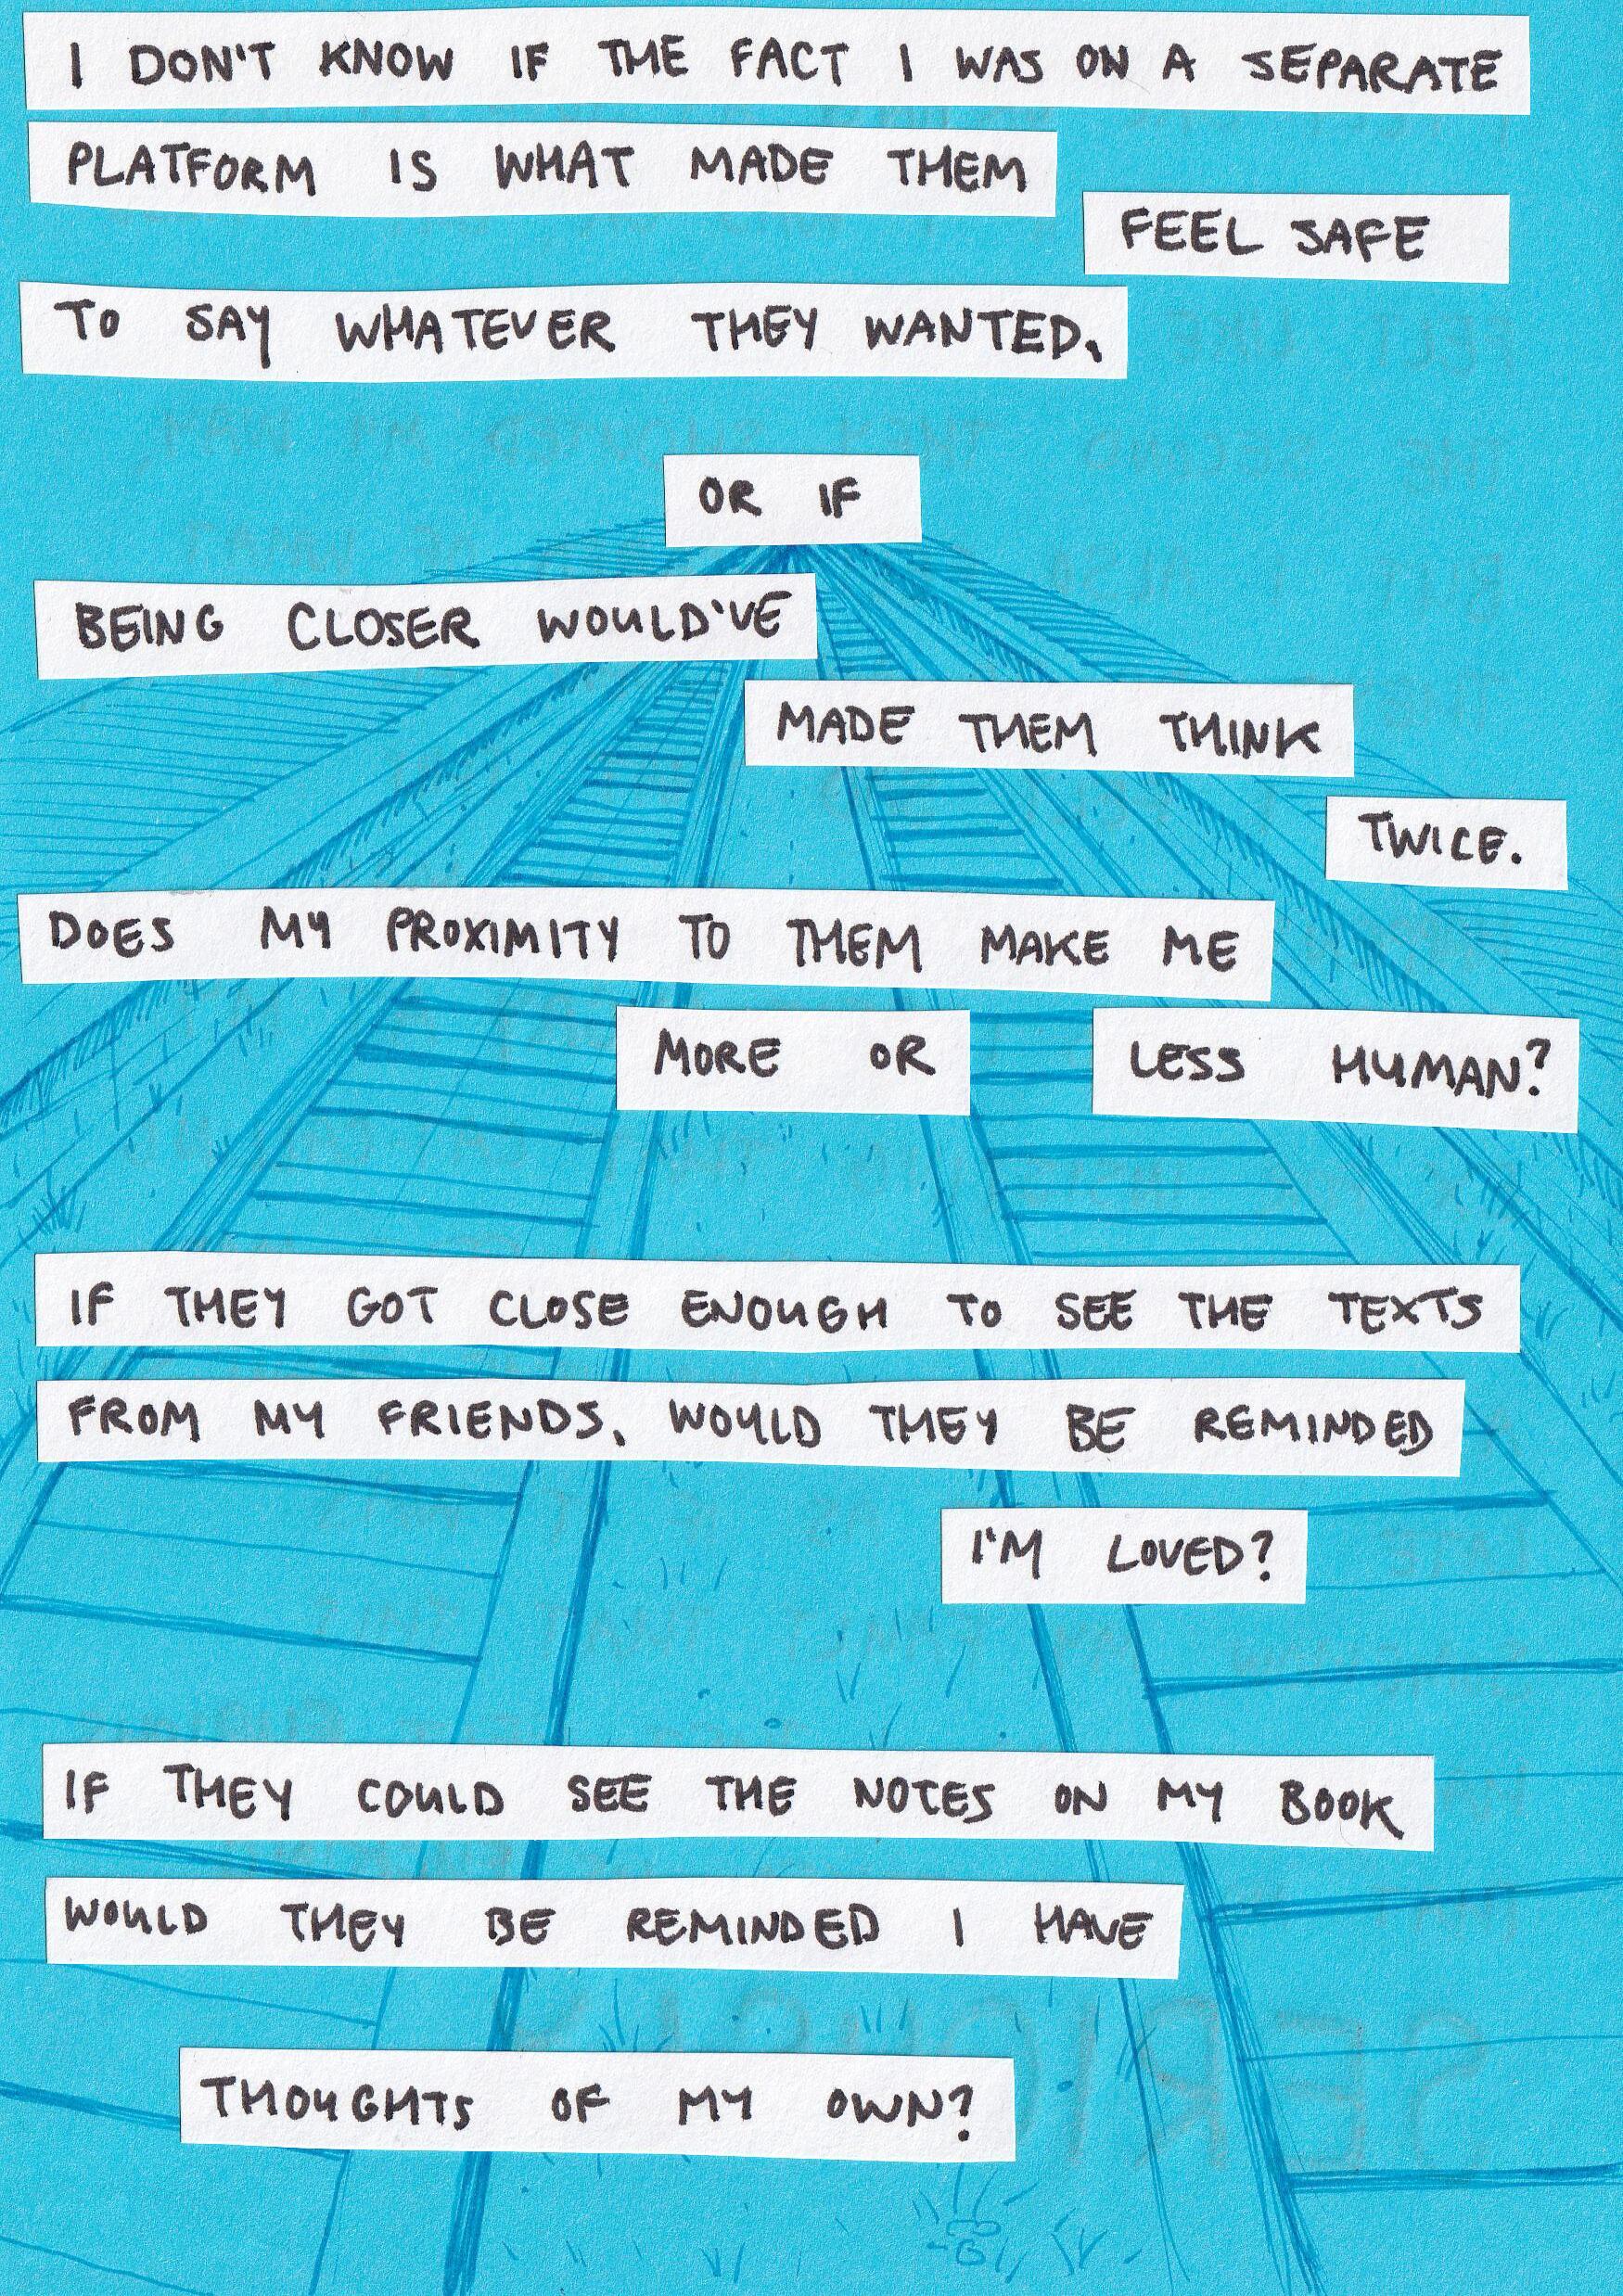 I DON'T KNOW IF THE FACT I WAS ON A SEPARATE
PLATFORM IS WHAT MADE THEM
FEEL SAFE
TO SAY WHATEVER THEY WANTED.
OR IF
BEING CLOSER WOULD'VE
MADE THEM THINK
TWICE.
DOES MY PROXIMITY TO THEM MAKE ME
MORE OR LESS HUMAN?
IF THEY GOT CLOSE ENOUGH TO SEE THE TEXTS
FROM MY FRIENDS, WOULD THEY BE REMINDED
I'M LOVED?
IF THEY COULD SEE THE NOTES ON MY BOOK
WOULD THEY BE REMINDED I HAVE
THOUGHTS OF MY OWN?